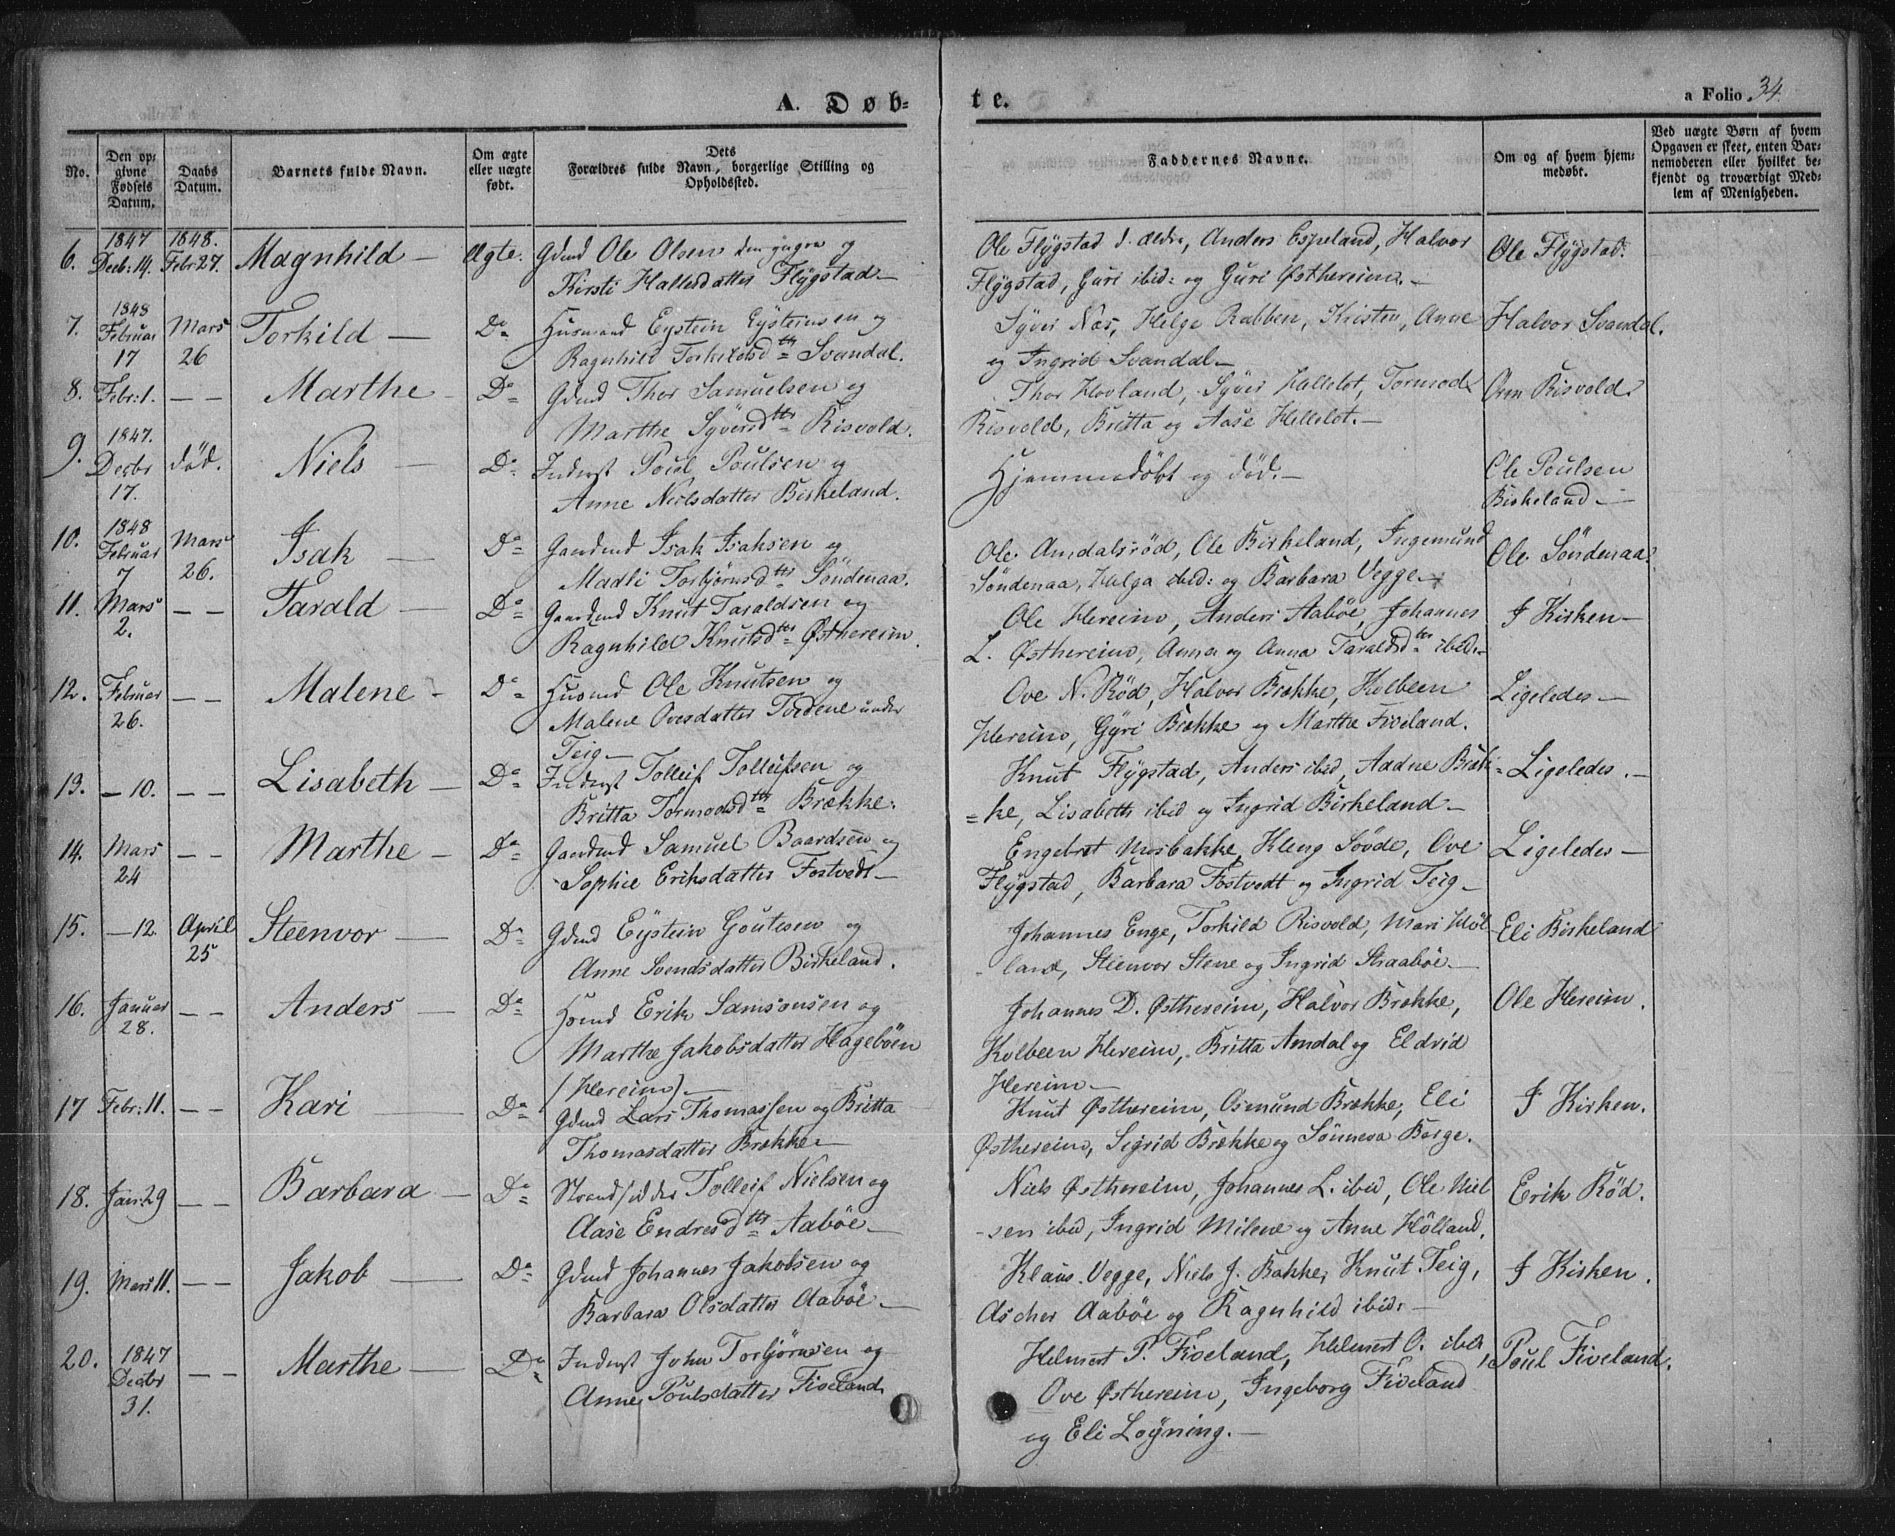 A. Døb-
te.
a Folio 34.
No.
Den op-
givne
Fødsels
Datum.
Daabs
Datum.
Barnets fulde Navn.
Om ægte
eller uægte
født.
Dets
Forældres fulde Navn, borgerlige Stilling og
Opholdssted.
Faddernes Navne.
Om og af hvem hjem-
medøbt.
Ved uægte Børn af hvem
Opgaven er skeet, enten Bar-
nemoderen eller hvilket be-
kjendt og troværdigt Med-
lem af Menigheden.
6. 1847 Decb: 19. 1848. Febr 27. Magnhild — Ægte. Gdmd Ole Olsen den yngre og
Kirsti Hallesdatter Flÿgstad —
Ole Flÿgstad d. ældre, Anders Espeland, Halvor
Flÿgstad, Guri ibid: og Guri Østhereim. —
Ole Flÿgstad.
7. 1848 Februar 17 Mars 26 Torkild — Do Husmand Eystein Eysteinsen og
Ragnhild Torkildsdtr Svandal.
Syver Næs, Helge Rabben, Kristen, Anne
og Ingrid Svandal —
Halvor Svandal.
8. Febr: 1. — — Marthe — Do Gdmd Thor Samuelsen og
Marthe Syversdtr Risvold.
Thor Hovland, Syver Hellelot, Tormod
Risvold, Britta og Aase Hellelot. —
Orm Risvold.
9. 1847. Decbr 17. død. Niels — Do Inderst Poul Poulsen og
Anne Nielsdatter Birkeland.
Hjemmedøbt og død. —
Ole Poulsen
Birkeland —
10. 1848 Februar 7 Mars 26. Isak — Do Gaardmd Isak Isaksen og
Marti Torbjørnsdtr Söndenaa.
Ole Amdalsrød, Ole Birkeland, Ingemund
Söndenaa, Helga ibid: og Barbara Vegge —
Ole Söndenaa.
11. Mars 2. — — Tarald — Do Gaardmd Knut Taraldsen og
Ragnhild Knutsdtr Østhereim.
Ole Hereim, Anders Aabøe, Johannes
L. Østhereim, Anna og Anna Taraldsdtr ibid: —
I Kirken —
12. Februar 26. — — Malene — Do Husmd Ole Knutsen og
Malene Ovesdatter Tordene under
Teig —
Ove N. Rød, Halvor Brække, Kolbeen
Hereim, Gÿri Brække og Marthe Fiveland.
Ligeledes —
13. — 10. — — Lisabeth — Do Inderst Tolleif Tolleifsen og
Britta Tormodsdtr Brække.
Knut Flÿgstad, Anders ibid, Aadne Bræk=
=ke, Lisabeth ibid og Ingrid Birkeland —
Ligeledes. —
14. Mars 24 — — Marthe — Do Gaardmd Samuel Baardsen og
Sophie Eriksdatter Fostvedt —
Engebret Mosbakke, Kleng Søvde, Ove
Flÿgstad, Barbara Fostvedt og Ingrid Teig —
Ligeledes —
15. — 12. April 25 Steenvor — Do Gdmd Eÿstein Goutesen og
Anne Svendsdatter Birkeland.
Johannes Enge, Torkild Risvold, Mari Høl
land, Steenvor Stene og Ingrid Straabøe —
Eli Birkeland
16. Januar 28. — — Anders — Do Hdmd Erik Samsonsen og
Marthe Jakobsdatter Hagebøen
(Hereim) —
Johannes D. Østhereim, Halvor Brække,
Kolbeen Hereim, Britta Amdal og Eldrid
Hereim —
Ole Hereim.
17 Febr: 11. — — Kari — Do Gdmd Lars Thomassen og Britta
Thomasdatter Brække —
Knut Østhereim, Osmund Brække, Eli
Østhereim, Sigrid Brække og Sønneva Borge.
I Kirken.
18. Jan: 29 — — Barbara — Do Strandsidder Tolleif Nielsen og
Aase Endresdtr Aabøe —
Niels Østhereim, Johannes L. ibid, Ole Niel
-sen ibid, Ingrid Milene og Anne Hölland.
Erik Rød.
19. Mars 11. — — Jakob — Do Gdmd Johannes Jakobsen og
Barbara Olsdatter Aabøe —
Klaus Vegge, Niels J. Bakke, Knut Teig,
Ascher Aabøe og Ragnhild ibid: —
I Kirken.
20. 1847 Decbr 31. — — Marthe — Do Inderst John Torbjörnsen og
Anne Poulsdatter Fiveland
Helmert P. Fiveland, Helmert O. ibid,
Ove Østhereim, Ingeborg Fiveland
og Eli Löyning. —
Poul Fiveland.